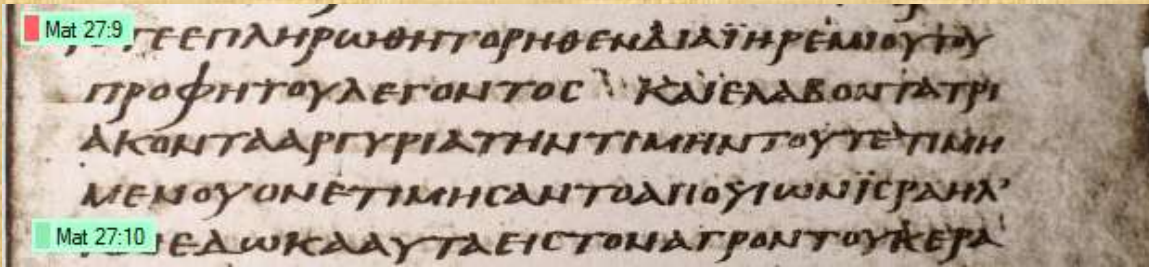 Mat 27:9
ΤΕΕΠΛΗΡΩΘΗΤΟΡΗΘΕΝΔΙΑΪΗΡΕΜΙΟΥΤΟΥ
ΠΡΟΦΗΤΟΥΛΕΓΟΝΤΟC ΚΑΙΕΛΑΒΟΝΤΑΤΡΙ
ΑΚΟΝΤΑΑΡΓΥΡΙΑΤΗΝΤΙΜΗΝΤΟΥΤΕΤΙΜΗ
ΜΕΝΟΥΟΝΕΤΙΜΗCΑΝΤΟΑΠΟΥΙΩΝΪCΡΑΗΛ’
Mat 27:10
ΕΔΩΚΑΑΥΤΑΕΙCΤΟΝΑΓΡΟΝΤΟΥΚΕΡΑ